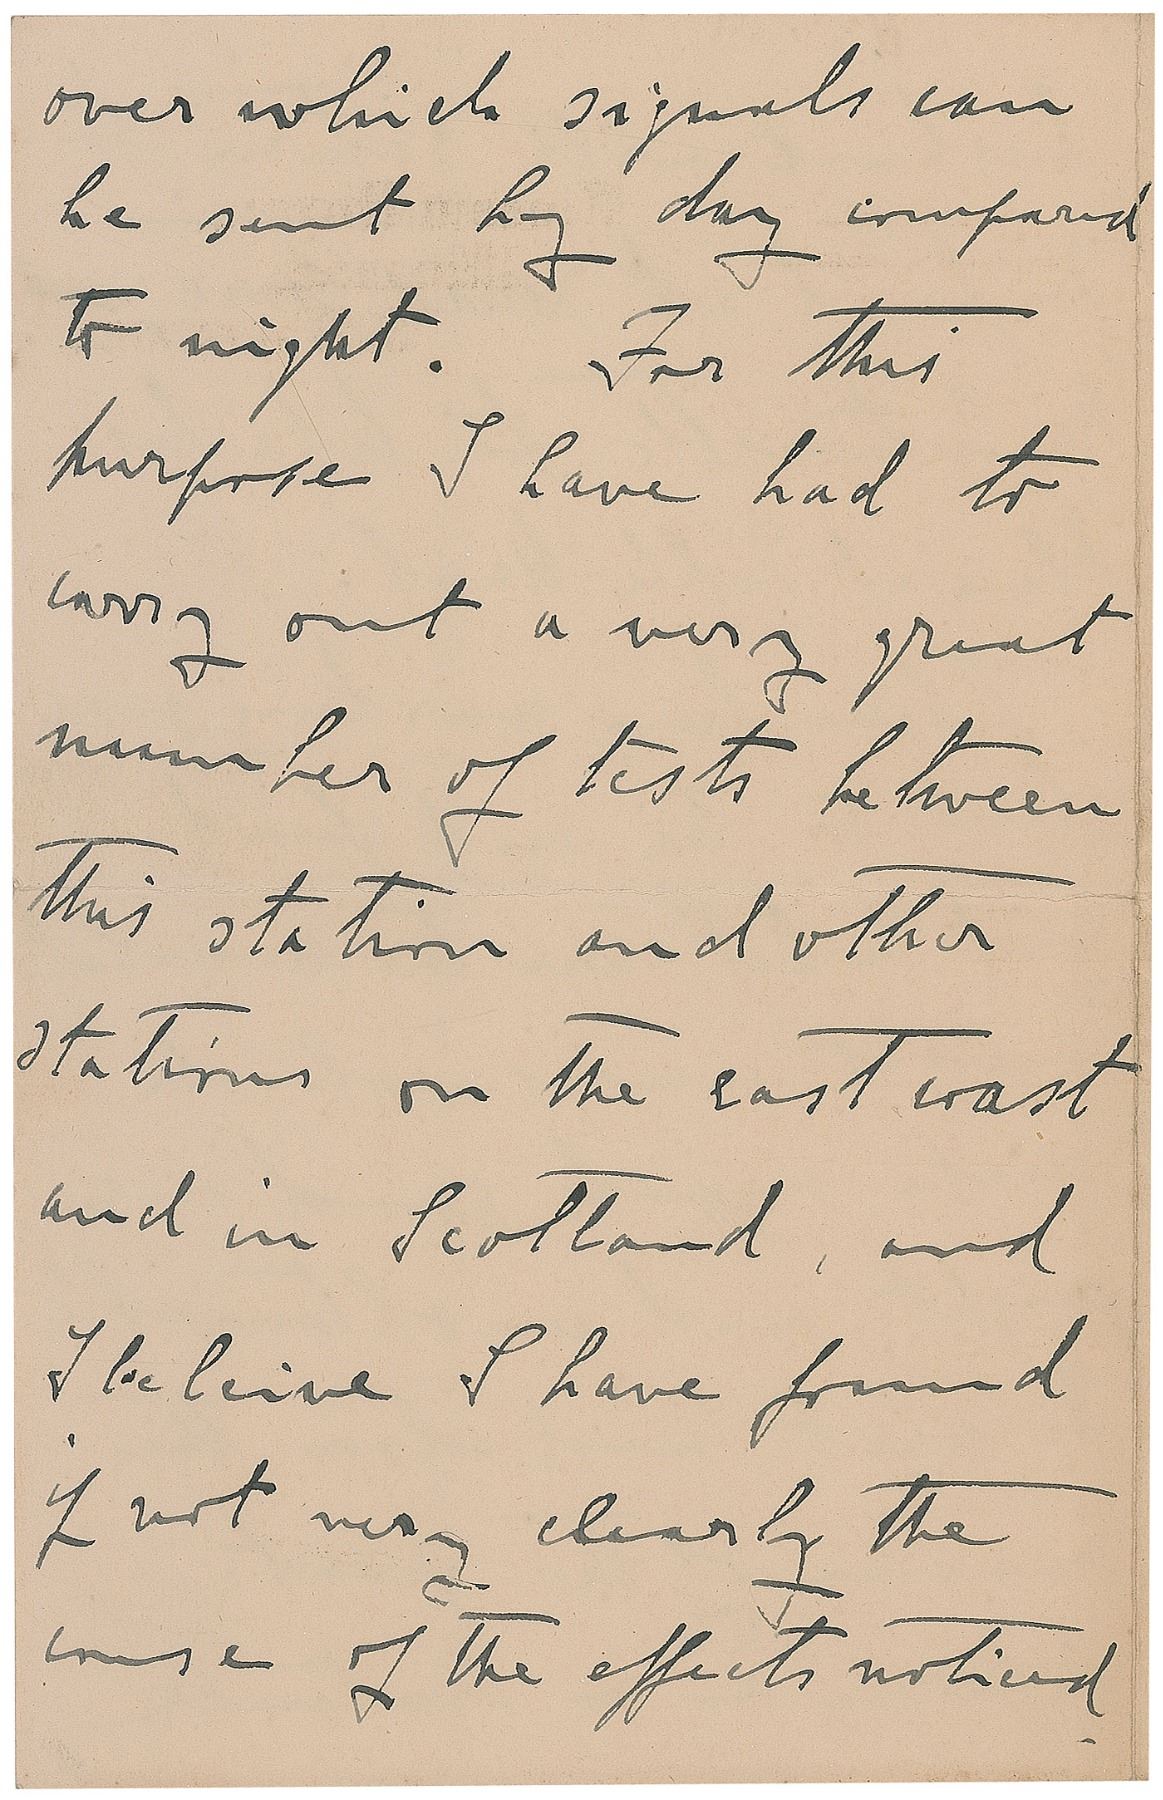 over which signals can
be sent by day compared
to night. For this
purpose I have had to
carry out a very great
number of tests between
this station and other
stations on the east coast
and in Scotland, and
I beleive I have found
if not very clearly the
cause of the effects noticed.